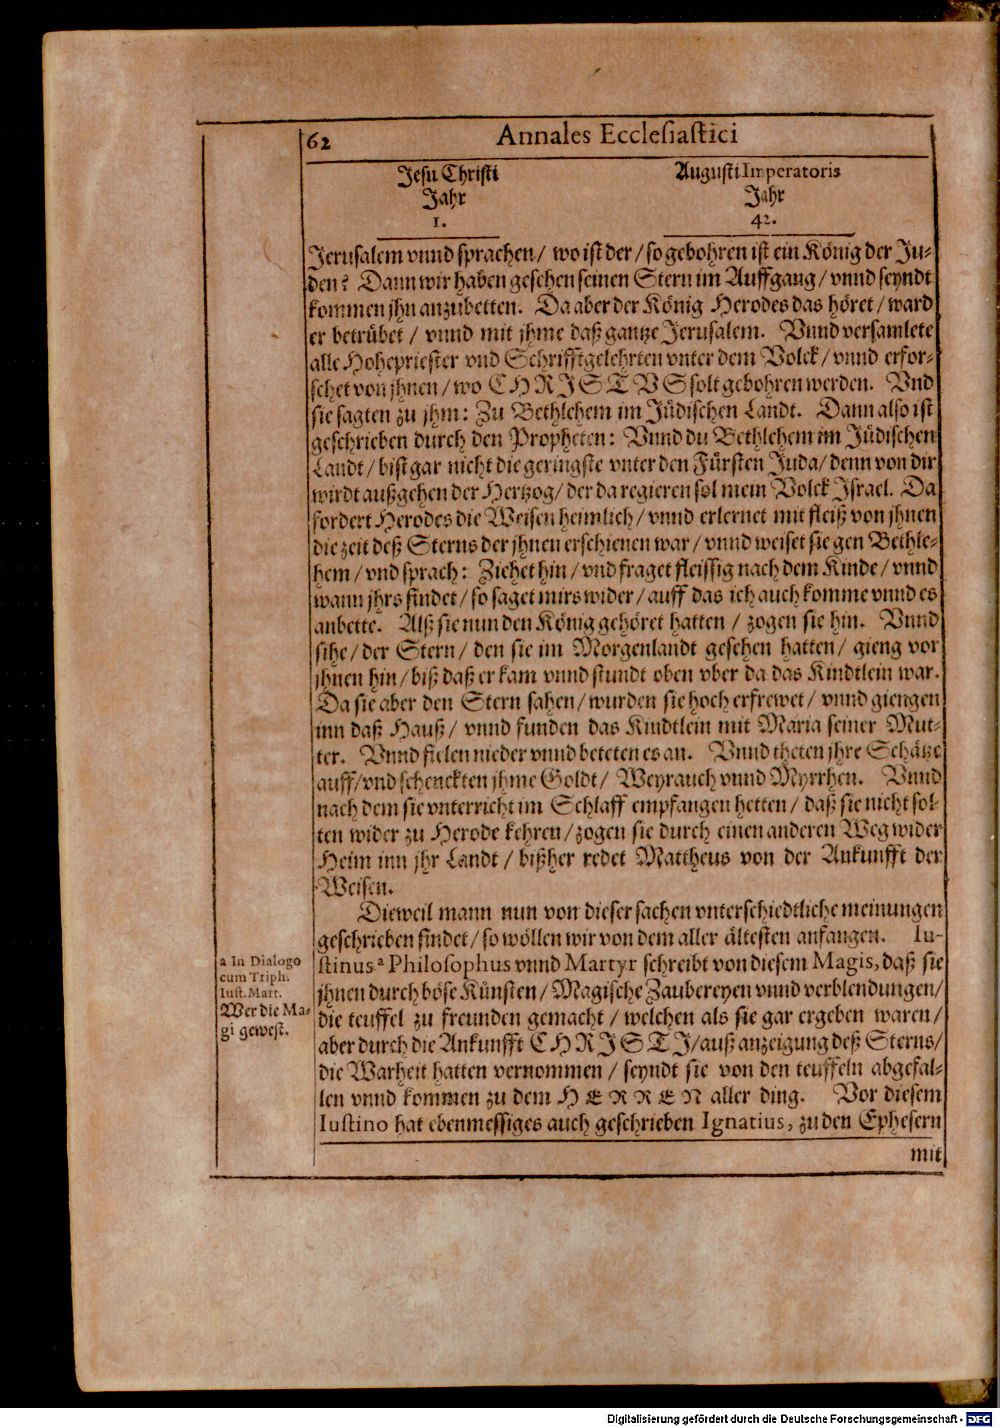 62 Annales Ecclesiastici
Jesu Christi
Jahr
1.
Augusti Imperatoris
Jahr
42.
Jerusalem vnnd sprachen/ wo ist der/ so gebohren ist ein König der Ju-
den? Dann wir haben gesehen seinen Stern im Auffgang/ vnnd seyndt
kommen jhn anzubetten. Da aber der König Herodes das höret/ ward
er betrübet/ vnnd mit jhme daß gantze Jerusalem. Vnnd versamlete
alle Hohepriester vnd Schrifftgelehrten vnter dem Volck/ vnnd erfor-
schet von jhnen/ wo CHRISTVS solt gebohren werden. Vnd
sie sagten zu jhm: Zu Bethlehem im Jüdischen Landt. Dann also ist
geschrieben durch den Propheten: Vnnd du Bethlehem im Jüdischen
Landt/ bist gar nicht die geringste vnter den Fürsten Juda/ denn von dir
wirdt außgehen der Hertzog/ der da regieren sol mein Volck Israel. Da
fordert Herodes die Weisen heimlich/ vnnd erlernet mit fleiß von jhnen
die zeit deß Sterns der jhnen erschienen war/ vnnd weiset sie gen Bethle-
hem/ vnd sprach: Ziehet hin/ vnd fraget fleissig nach dem Kinde/ vnnd
wann jhrs findet/ so saget mirs wider/ auff das ich auch komme vnnd es
anbette. Alß sie nun den König gehöret hatten/ zogen sie hin. Vnnd
sihe/ der Stern/ den sie im Morgenlandt gesehen hatten/ gieng vor
jhnen hin/ biß daß er kam vnnd stundt oben vber da das Kindtlein war.
Da sie aber den Stern sahen/ wurden sie hoch erfrewet/ vnnd giengen
inn daß Hauß/ vnnd funden das Kindtlein mit Maria seiner Mut-
ter. Vnnd fielen nieder vnnd beteten es an. Vnnd theten jhre Schätze
auff/ vnd schenckten jhme Goldt/ Weyrauch vnnd Myrrhen. Vnnd
nach dem sie vnterricht im Schlaff empfangen hetten/ daß sie nicht sol-
ten wider zu Herode kehren/ zogen sie durch einen anderen Weg wider
Heim inn jhr Landt/ bißher redet Mattheus von der Ankunfft der
Weisen.
Dieweil mann nun von dieser sachen vnterschiedtliche meinungen
geschrieben findet/ so wöllen wir von dem aller ältesten anfangen. Iu-
stinus a Philosophus vnnd Martyr schreibt von diesem Magis, daß sie
jhnen durch böse Künsten/ Magische Zaubereyen vnnd verblendungen/
die teuffel zu freunden gemacht/ welchen als sie gar ergeben waren/
aber durch die Ankunfft CHRISTI/ auß anzeigung deß Sterns/
die Warheit hatten vernommen/ seyndt sie von den teuffeln abgefal-
len vnnd kommen zu dem HERREN aller ding. Vor diesem
Iustino hat ebenmessiges auch geschrieben Ignatius, zu den Ephesern
mit
a In Dialogo
cum Triph.
Iust. Mart.
Wer die Ma-
gi gewest.
Digitalisierung gefördert durch die Deutsche Forschungsgemeinschaft - DFG